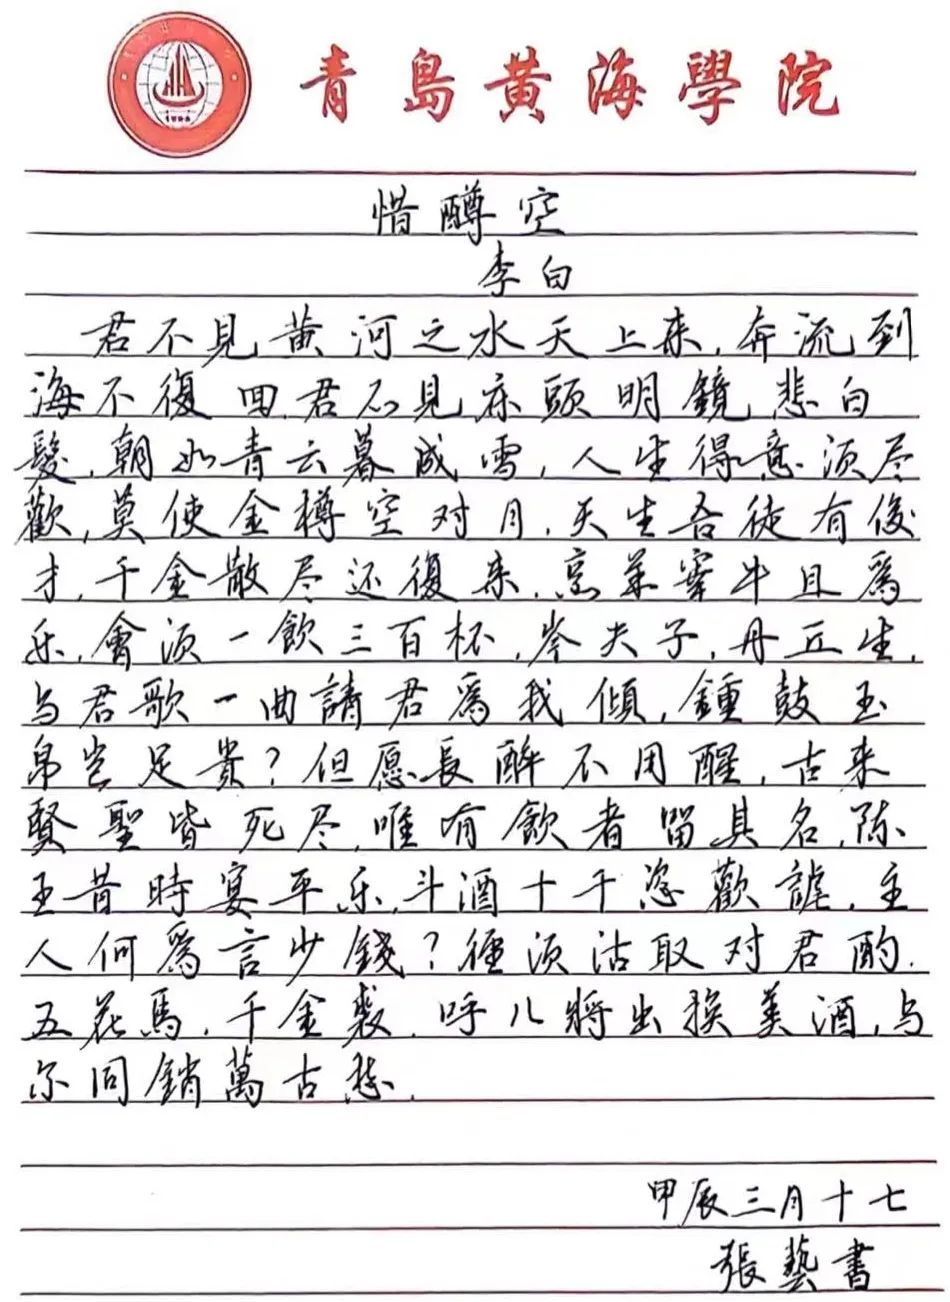 青島黄海學院
惜罇空
李白
君不見黄河之水天上来,奔流到
海不復回.君不見床頭明鏡悲白
髮,朝如青云暮成雪,人生得意須尽
歡,莫使金樽空对月.天生吾徒有俊
才,千金散尽还復来.烹羊宰牛且爲
乐,會須一飲三百杯,岑夫子,丹丘生,
与君歌一曲請君爲我傾,鍾鼓玉
帛岂足貴?但愿長醉不用醒,古来
賢聖皆死尽,唯有飲者留其名,陈
王昔時宴平乐,斗酒十千恣歡謔,主
人何爲言少錢?徑須沽取对君酌.
五花馬,千金裘,呼儿將出換美酒,与
尔同銷萬古愁.
甲辰三月十七
張藝書